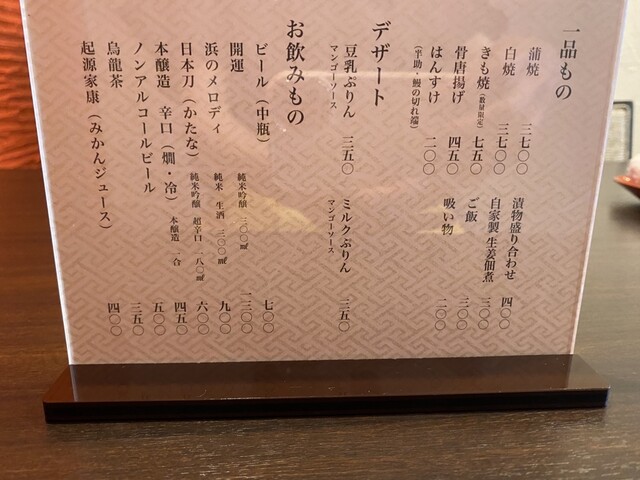 一品もの
蒲焼 三七〇〇
白焼 三七〇〇
きも焼(数量限定) 七五〇
骨唐揚げ 四五〇
はんすけ 二〇〇
(半助・鰻の切れ端)
漬物盛り合わせ 四〇〇
自家製生姜佃煮 三〇〇
ご飯 三〇〇
吸い物 二〇〇
デザート
豆乳ぷりん 三五〇
マンゴーソース
ミルクぷりん 三五〇
マンゴーソース
お飲みもの
ビール(中瓶) 七〇〇
開運 純米吟醸 三〇〇㎖ 一三〇〇
浜のメロディ 純米 生酒 三〇〇㎖ 九〇〇
日本刀(かたな) 純米吟醸 超辛口 一八〇㎖ 六〇〇
本醸造 辛口(燗・冷) 本醸造 一合 四五〇
ノンアルコールビール 五〇〇
烏龍茶 三五〇
起源家康(みかんジュース) 四〇〇